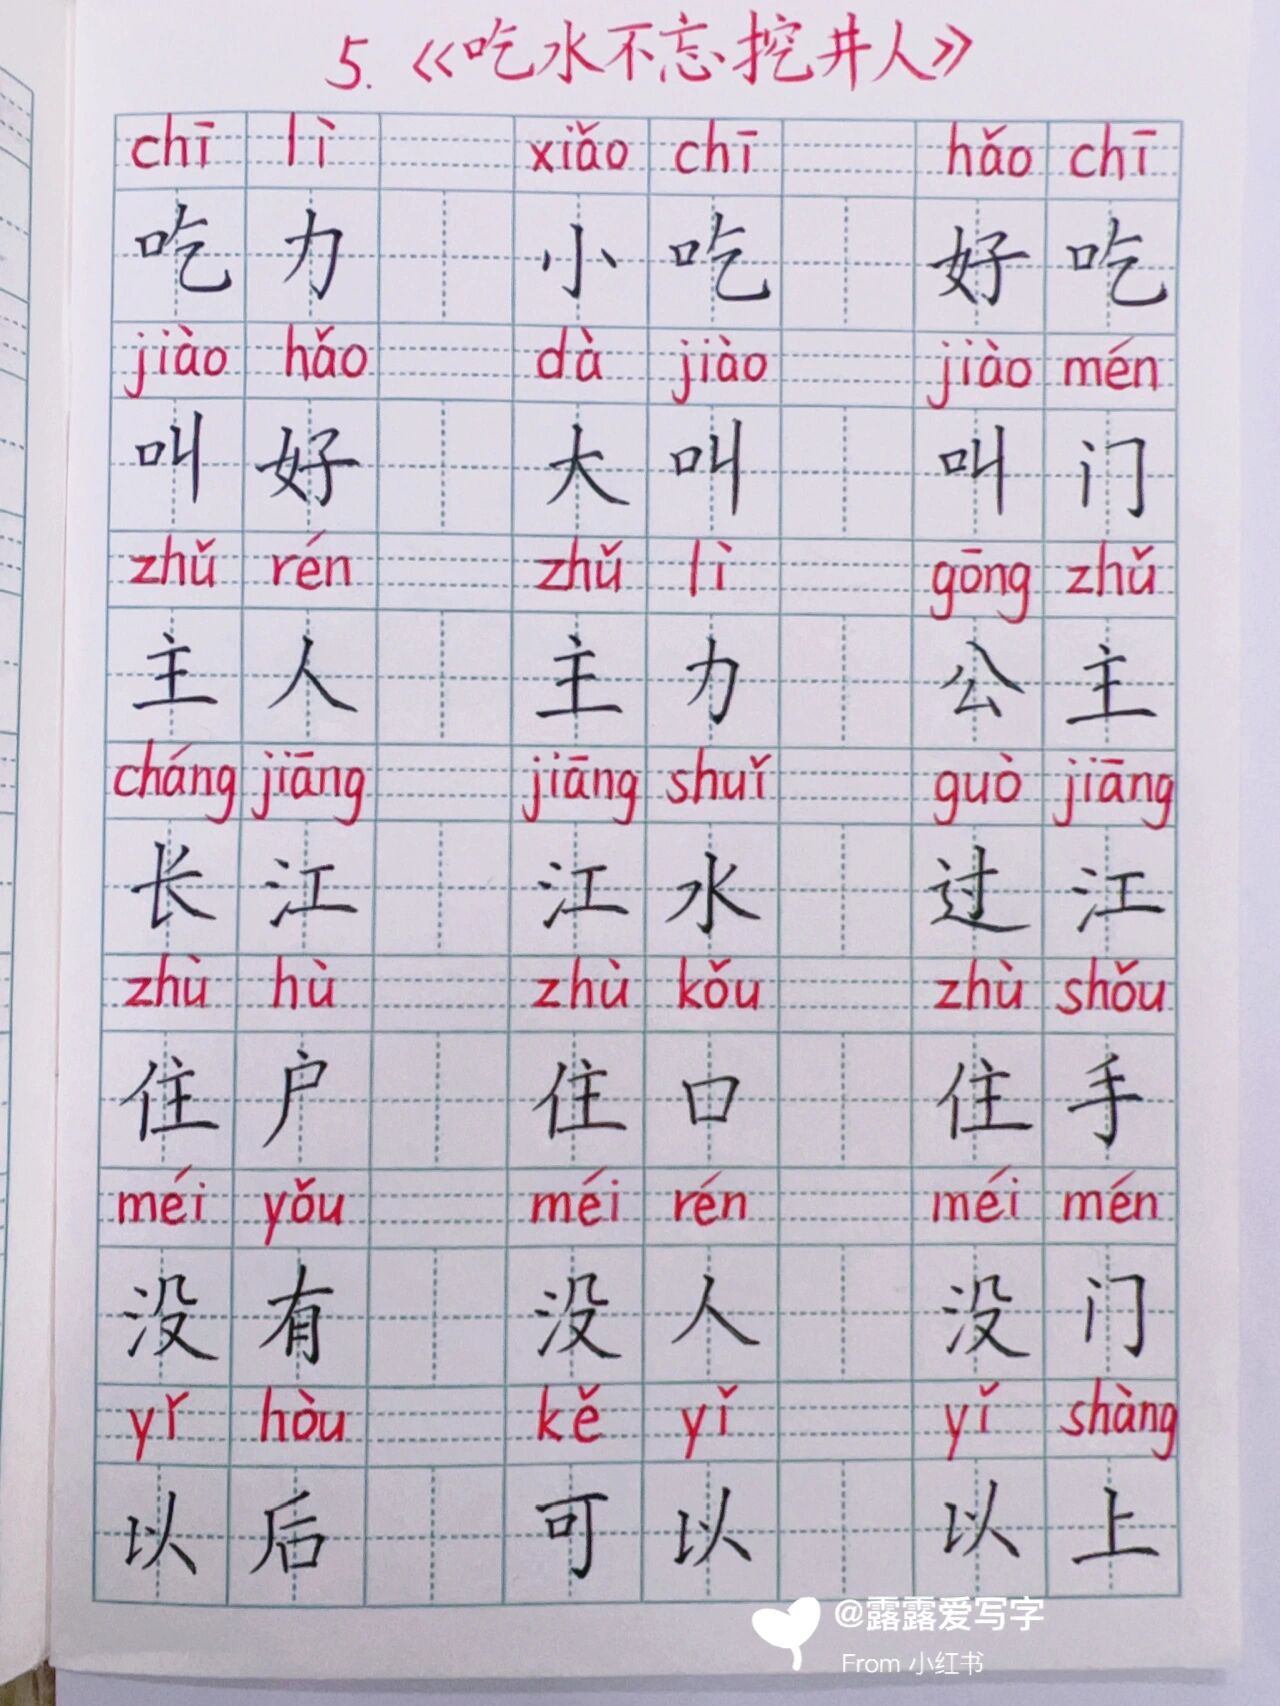 5.《吃水不忘挖井人》
chī lì xiǎo chī hǎo chī
吃力 小吃 好吃
jiào hǎo dà jiào jiào mén
叫好 大叫 叫门
zhǔ rén zhǔ lì gōng zhǔ
主人 主力 公主
cháng jiāng jiāng shuǐ guò jiāng
长江 江水 过江
zhù hù zhù kǒu zhù shǒu
住户 住口 住手
méi yǒu méi rén méi mén
没有 没人 没门
yǐ hòu kě yǐ yǐ shàng
以后 可以 以上
@露露爱写字
From 小红书